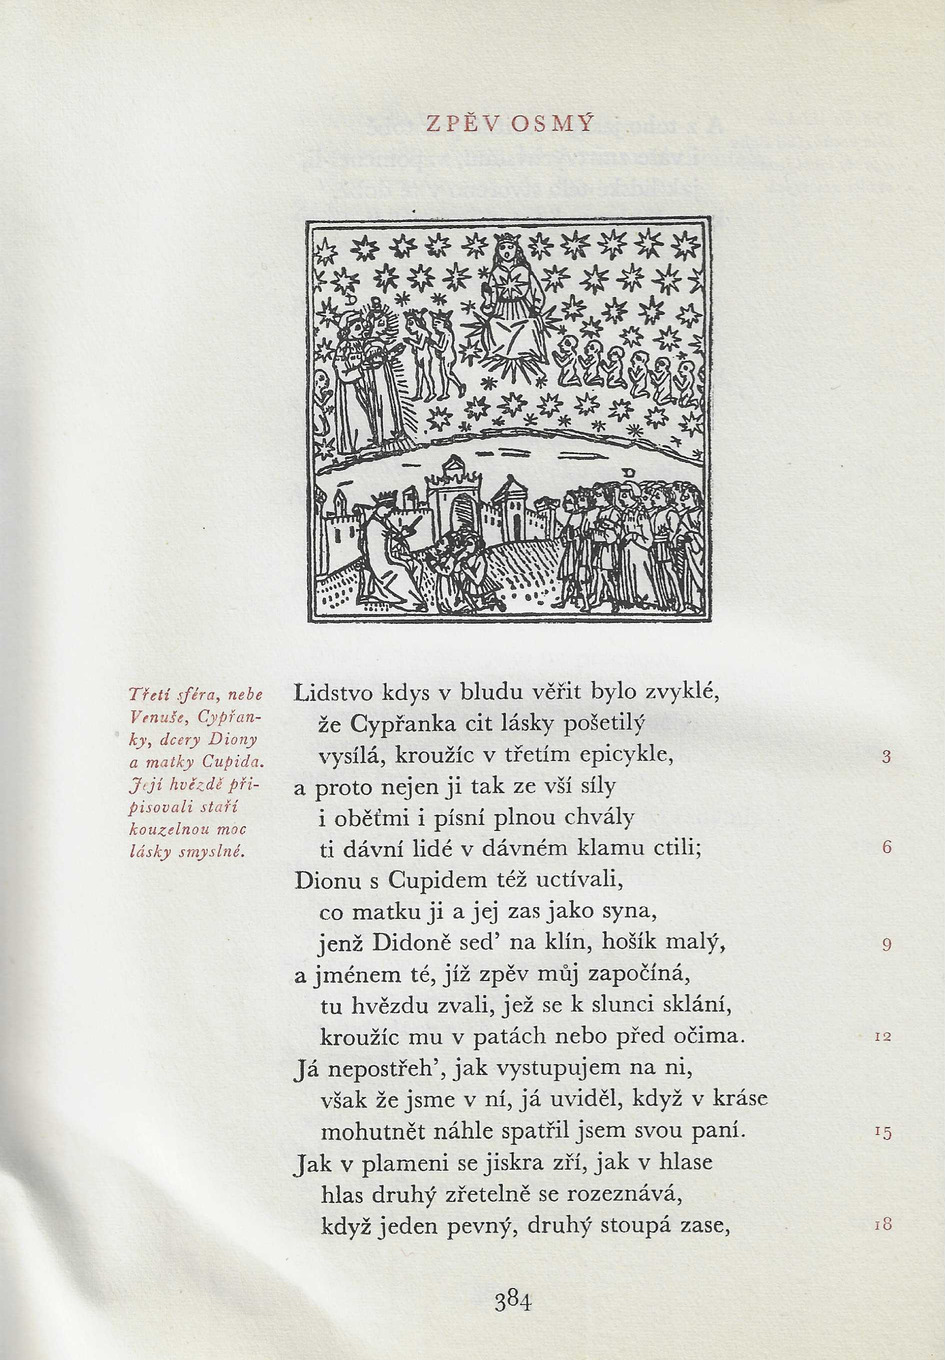 ZPĚV OSMÝ
D
B
D
Třetí sféra, nebe
Venuše, Cypřan-
ky, dcery Diony
a matky Cupida.
Její hvězdě při-
pisovali staří
kouzelnou moc
lásky smyslné.
Lidstvo kdys v bludu věřit bylo zvyklé,
že Cypřanka cit lásky pošetilý
vysílá, kroužíc v třetím epicykle,
3
a proto nejen ji tak ze vší síly
i oběťmi i písní plnou chvály
ti dávní lidé v dávném klamu ctili;
6
Dionu s Cupidem též uctívali,
co matku ji a jej zas jako syna,
jenž Didoně sed’ na klín, hošík malý,
9
a jménem té, jíž zpěv můj započíná,
tu hvězdu zvali, jež se k slunci sklání,
kroužíc mu v patách nebo před očima.
12
Já nepostřeh’, jak vystupujem na ni,
však že jsme v ní, já uviděl, když v kráse
mohutnět náhle spatřil jsem svou paní.
15
Jak v plameni se jiskra zří, jak v hlase
hlas druhý zřetelně se rozeznává,
když jeden pevný, druhý stoupá zase,
18
384